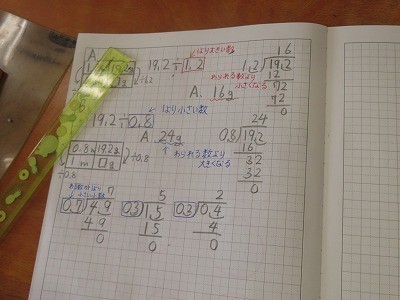 A
19,2÷1,2
1より大きい数
わられる数より
小さくなる
A. 16g
16
1,2)19,2
12
72
72
0
19,2÷0,8
←1より小さい数
A. 24g
わられる数より
大きくなる
0.8m 19.2g
1 m □g
÷0.8
÷0.8
24
0,8)19,2
16
32
32
0
7
0,7)4,9
49
0
5
0,3)1,5
15
0
2
0,2)0,4
4
0